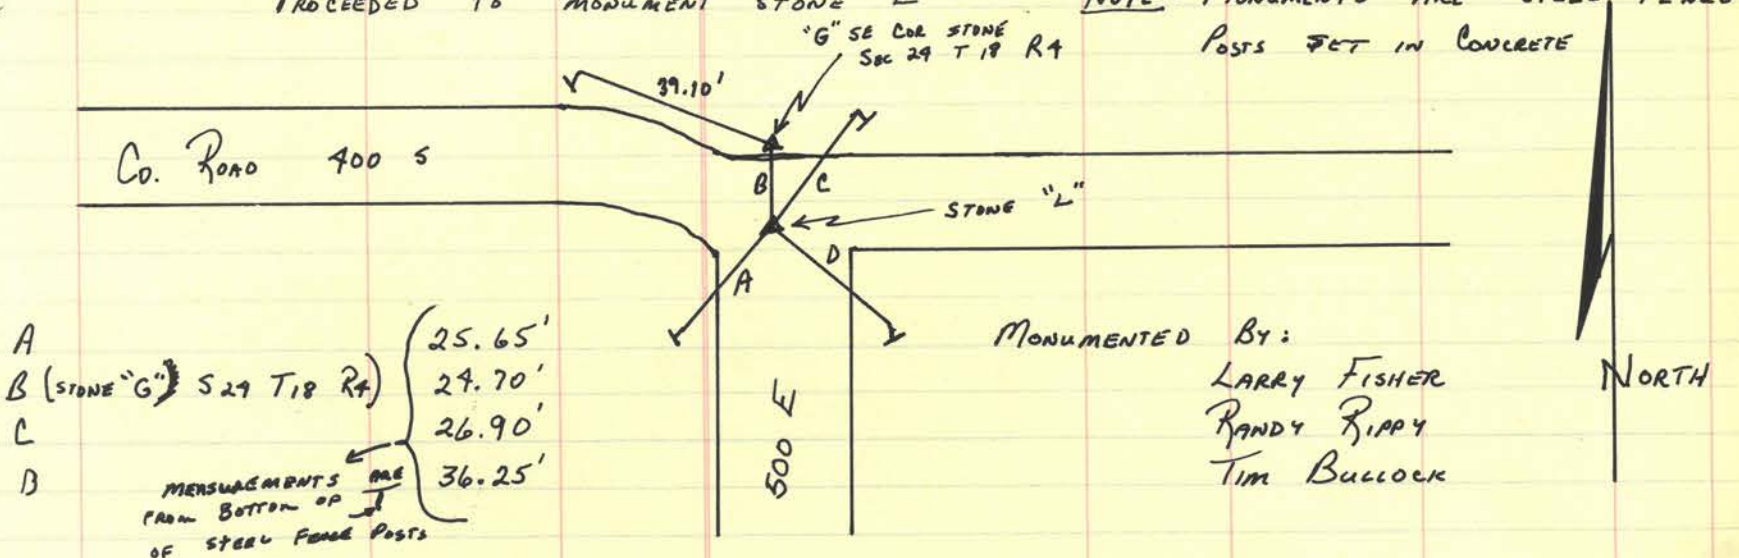 PROCEEDED TO MONUMENT STONE "L" NOTE MONUMENTS ARE STEEL FENCE
POSTS SET IN CONCRETE
"G" SE COR STONE
SEC 24 T 18 R4
39.10'
CO. ROAD 400 S
B
C
STONE "L"
A
D
A 25.65'
B (STONE "G") S 24 T18 R4) 24.70'
C 26.90'
B 36.25'
MEASUREMENTS ARE
FROM BOTTOM OF
OF STEEL FENCE POSTS
500 E
MONUMENTED BY:
LARRY FISHER
RANDY RIPPY
TIM BULLOCK
NORTH